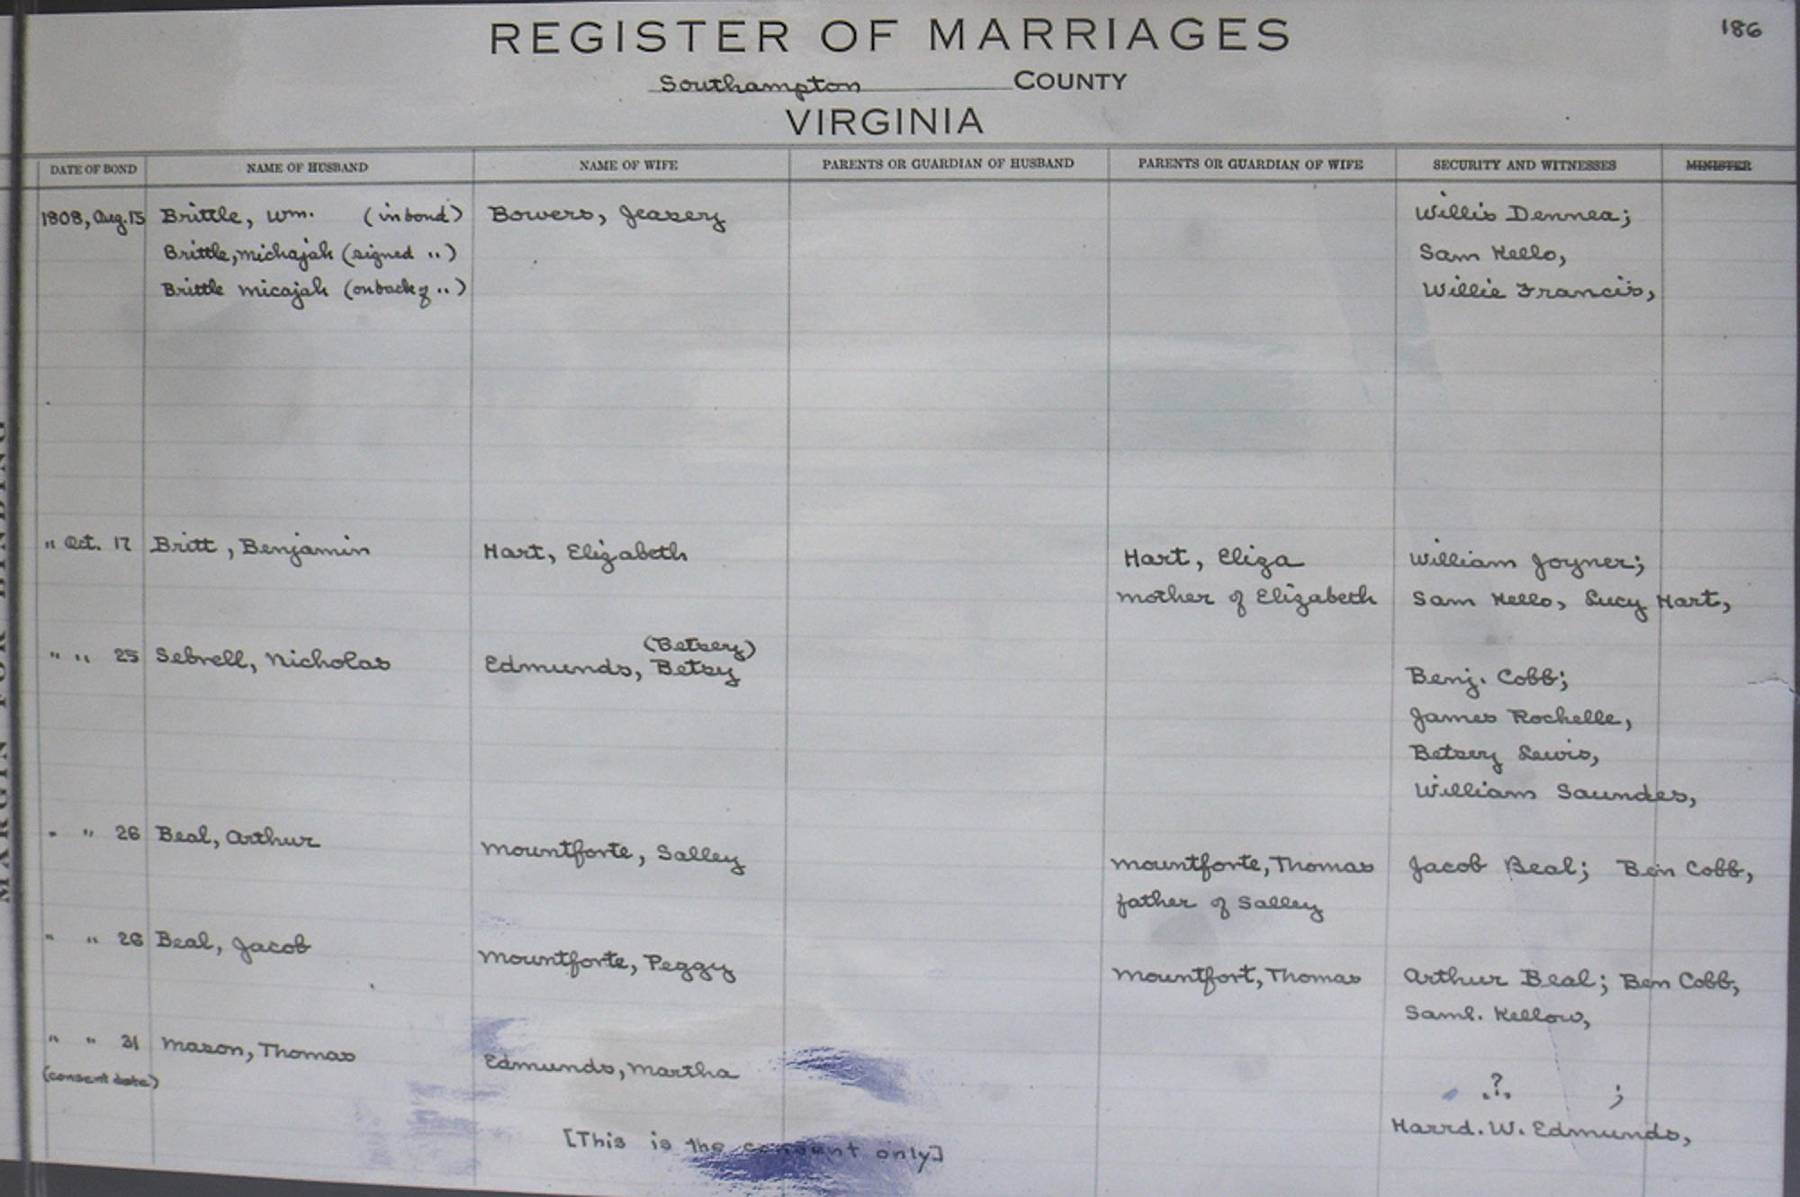 186
REGISTER OF MARRIAGES
Southampton COUNTY
VIRGINIA
DATE OF BOND NAME OF HUSBAND NAME OF WIFE PARENTS OR GUARDIAN OF HUSBAND PARENTS OR GUARDIAN OF WIFE SECURITY AND WITNESSES MINISTER
1808, Aug. 15 Brittle, Wm. (in bond) Bowers, Jeasey Willis Dennea;
Brittle, Michajah (signed ") Sam Kello,
Brittle Micajah (on back of ") Willie Francis,
" Oct. 17 Britt, Benjamin Hart, Elizabeth Hart, Eliza William Joyner;
mother of Elizabeth Sam Kello, Lucy Hart,
(Betsey)
" " 25 Sebrell, Nicholas Edmunds, Betsy Benj. Cobb;
James Rochelle,
Betsey Lewis,
William Saundes,
" " 26 Beal, Arthur Mountforte, Salley Mountforte, Thomas Jacob Beal; Ben Cobb,
father of Salley
" " 26 Beal, Jacob Mountforte, Peggy Mountfort, Thomas Arthur Beal; Ben Cobb,
Saml. Kellow,
" " 31 Mason, Thomas Edmunds, Martha ? ;
(consent date) Harrd. W. Edmunds,
[This is the consent only]
MARGIN FOR BINDING